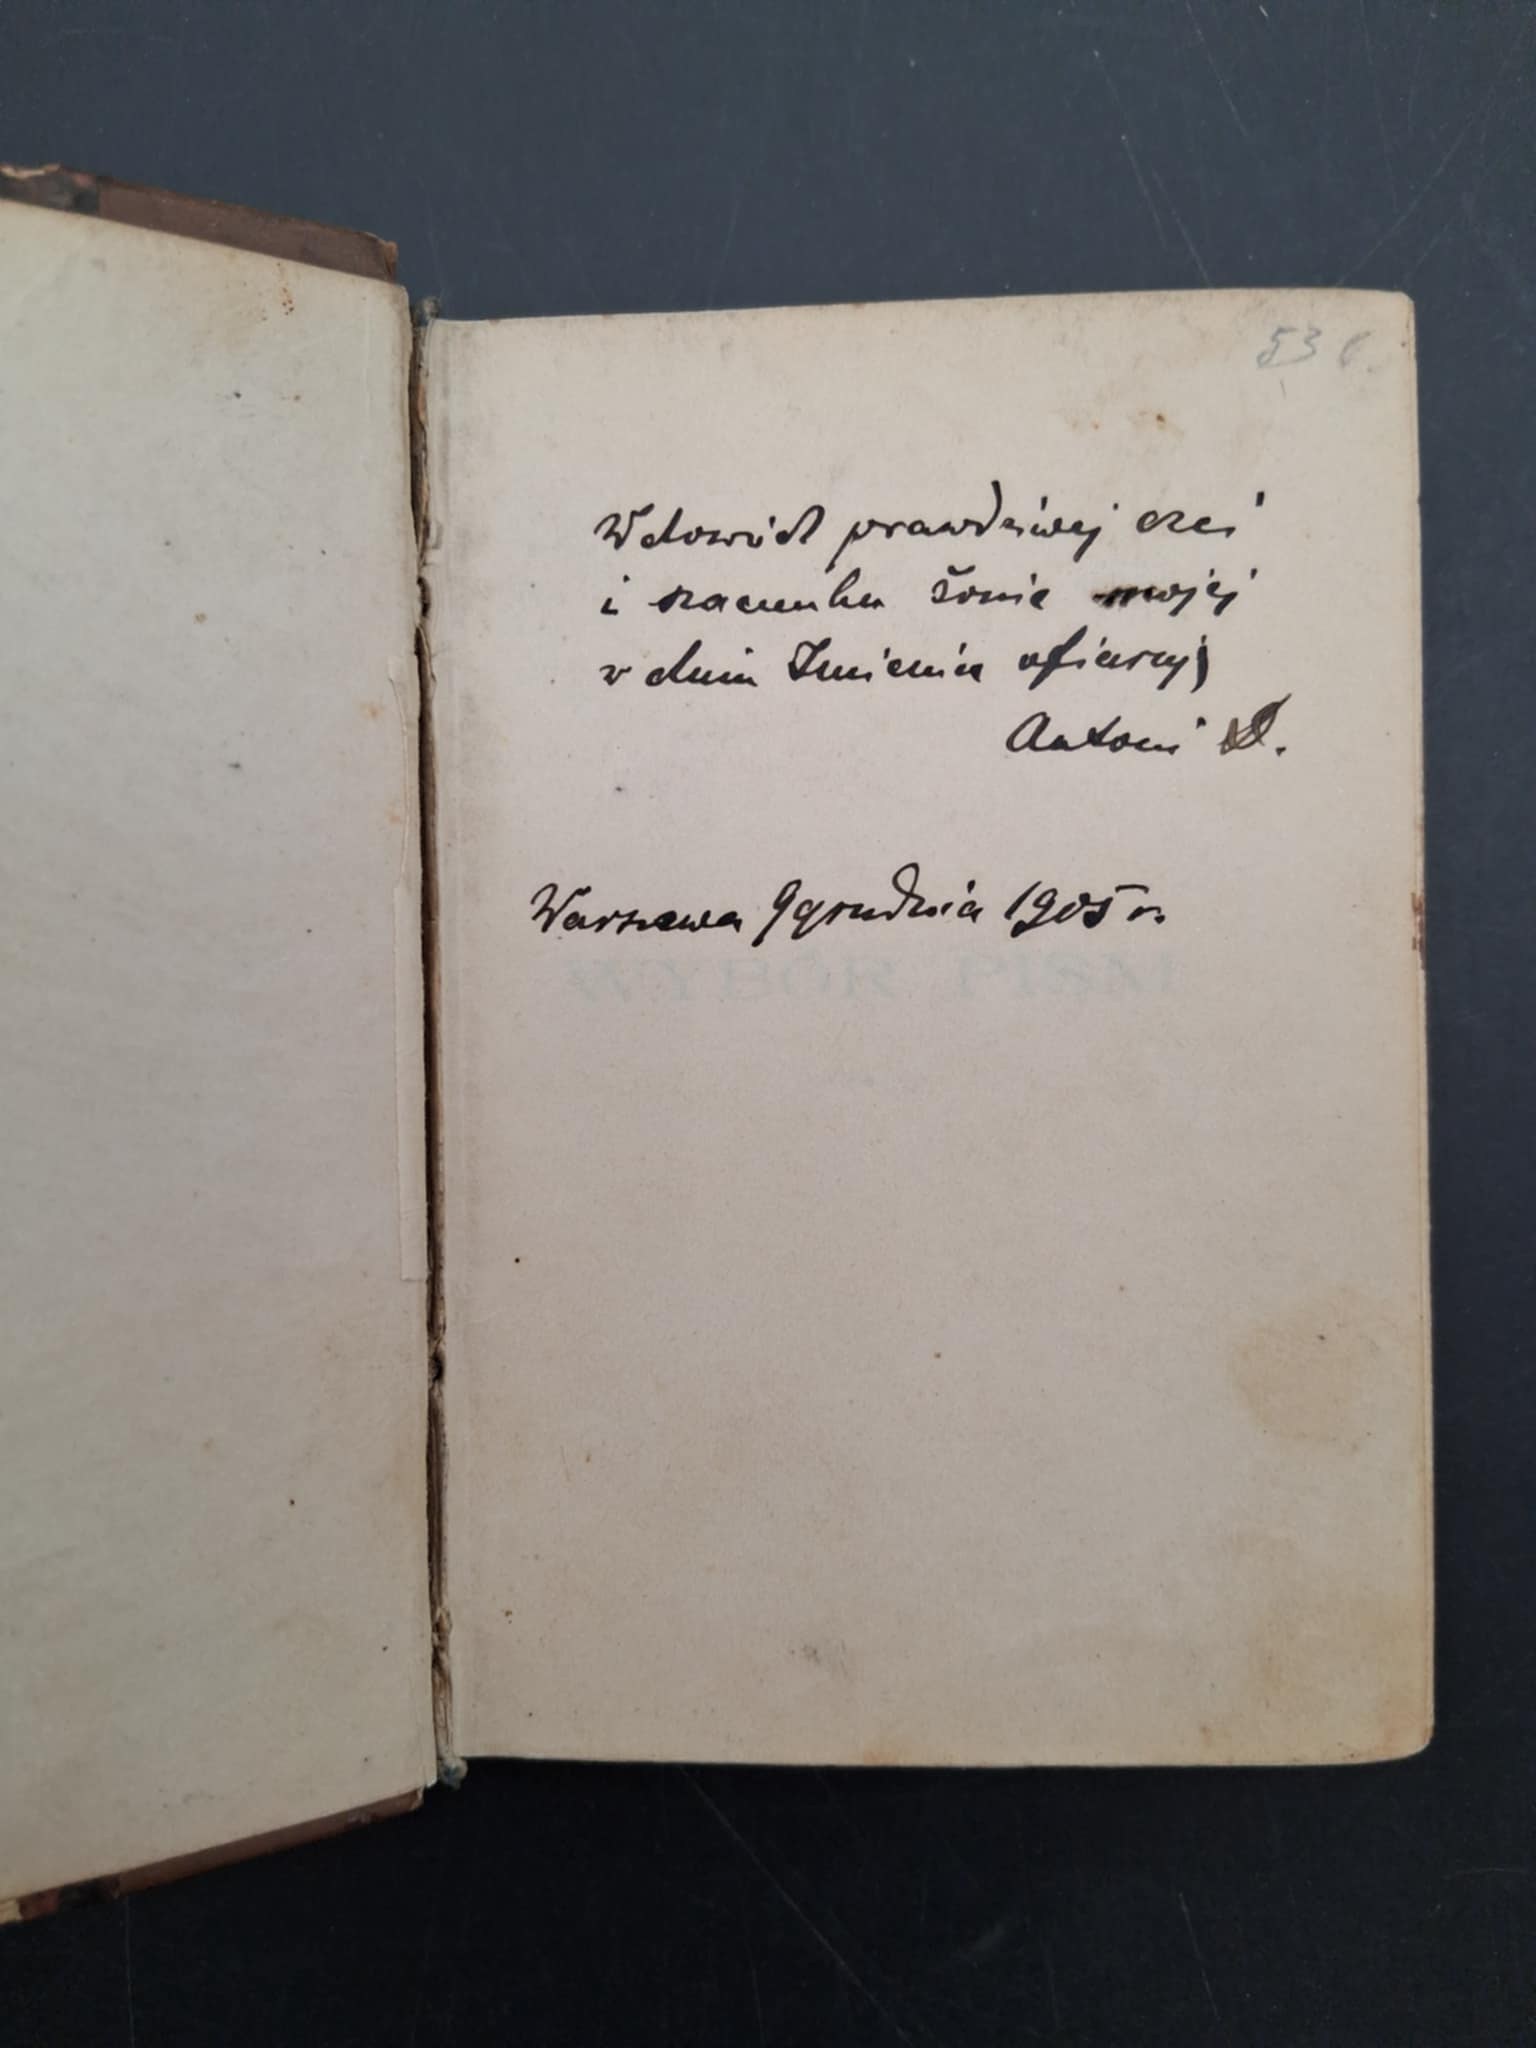 53
W dowód prawdziwej czci
i szacunku żonie mojej
w dniu Imienia ofiaruję
Antoni D.
Warszawa 9 grudnia 1905 r.
WYBÓR PISM